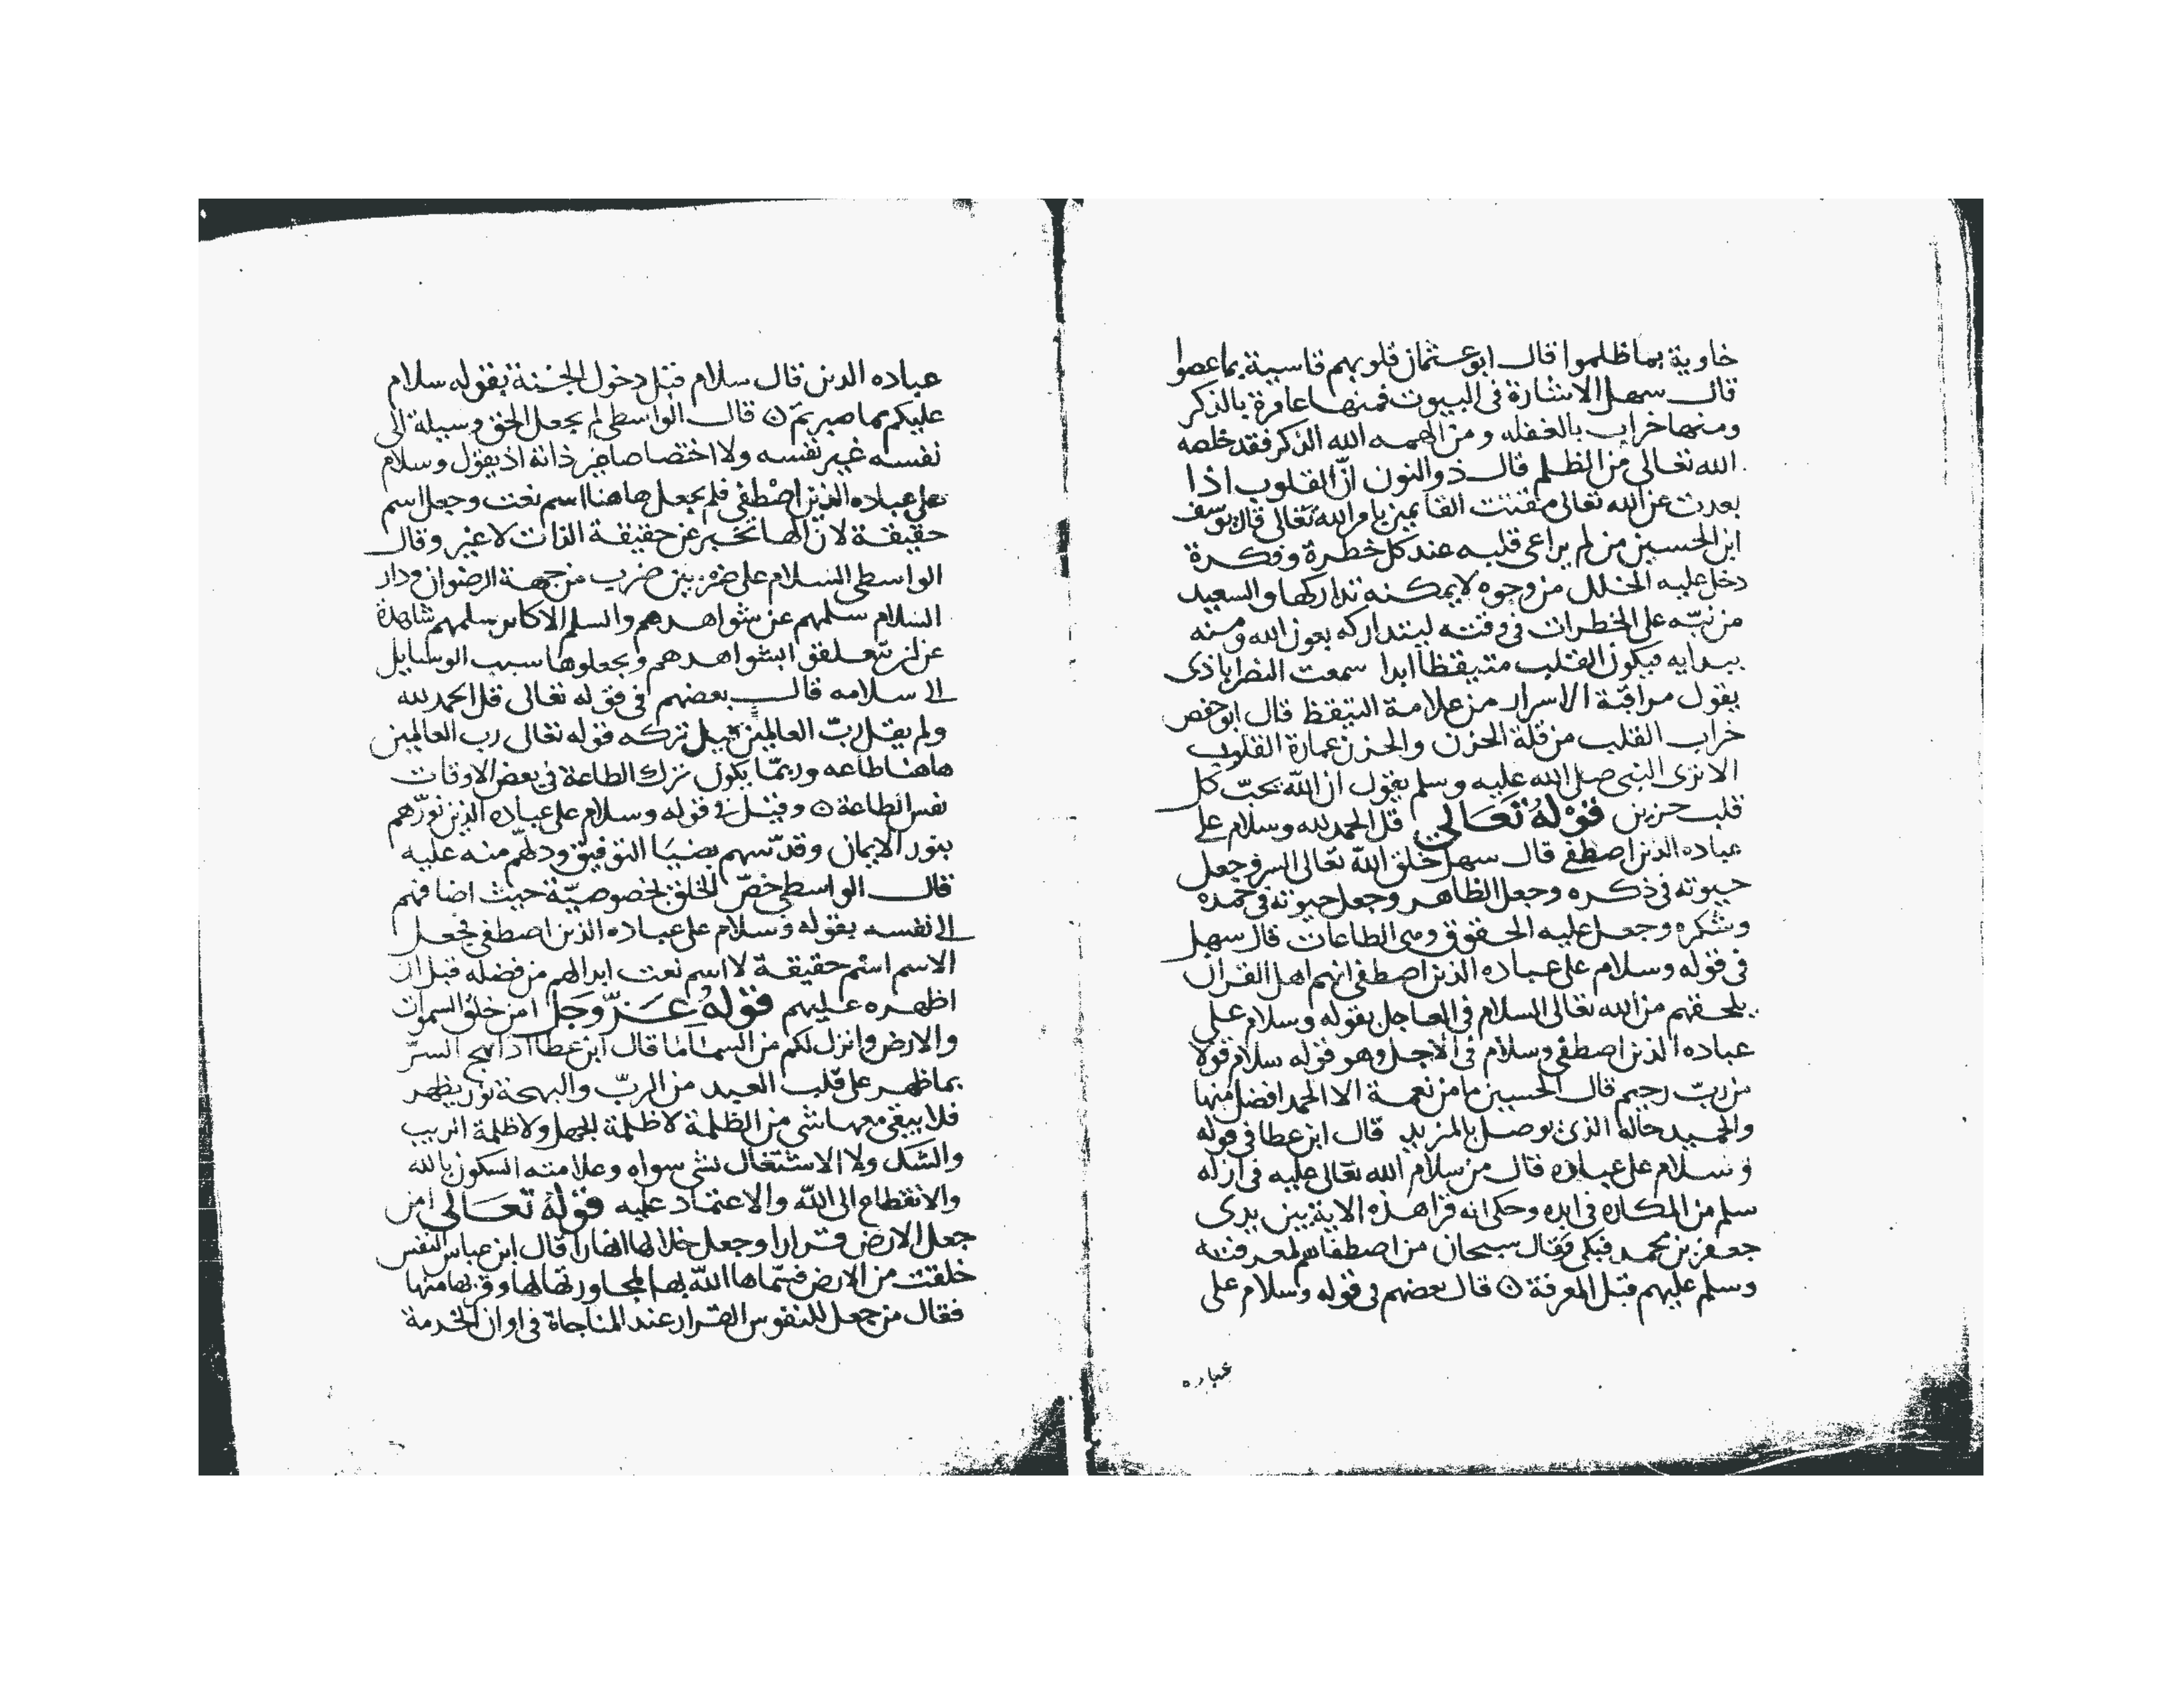 خاوية بما ظلموا قال ابو عثمان قلوبهم قاسية بما عصوا
قال سهل الاشارة في البيوت فمنها عامرة بالذكر
ومنها خراب بالغفله ومن الهمه الله الذكر فقد خلصه
الله تعالى من الظلم قال ذوالنون ان القلوب اذا
بعدت عن الله تعالى مقتت القايمين بامر الله تعالى قال يوسف
ابن الحسين من لم يراعي قلبه عند كل خطرة وفكرة
دخل عليه الخلل من وجوه لا يمكنه تداركها والسعيد
من نبّه على الخطرات في وقته ليتداركه بعون الله ومنه
يبدايه فيكون القلب متيقظا ابدا سمعت النصراباذي
يقول مراقبة الاسرار من علامة التيقظ قال ابو حفص
خراب القلب من قلة الحزن والحزن عمارة القلوب
الا ترى النبي صلى الله عليه وسلم يقول ان الله يحبّ كل
قلب حزين قوله تعالى قل الحمد لله وسلام على
عباده الذين اصطفى قال سهل خلق الله تعالى السر وجعل
حيوته في ذكره وجعل الظاهر وجعل حيوته في حمده
وشكره وجعل عليه الحقوق وهي الطاعات قال سهل
في قوله وسلام على عباده الذين اصطفى انهم اهل القران
يلحقهم من الله تعالى السلام في العاجل بقوله وسلام على
عباده الذين اصطفى وسلام في الاجل وهو قوله سلام قولا
من ربّ رحيم قال الحسين ما من نعمة الا الحمد افضل منها
والحميد حاله الذي يوصل بالمزيد قال ابن عطا في قوله
وسلام على عباده قال من سلام الله تعالى عليه في ازله
سلم من المكاره في ابده وحكي انه قرا هذه الاية بين يدي
جعفر بن محمد فبكى وقال سبحان من اصطفاهم لمعرفته
وسلم عليهم قبل المعرفة ○ قال بعضهم في قوله وسلام على
عباده
عباده الذين قال سلام قبل دخول الجنة بقوله سلام
عليكم بما صبرتم ○ قال الواسطي لم يجعل الحق وسيلة الى
نفسه غير نفسه ولا اختصاصا غير ذاته اذ يقول وسلام
على عباده الذين اصطفى فلم يجعل هاهنا اسم نعت وجعل اسم
حقيقة لان الها تخبر عن حقيقة الذات لا غير وقال
الواسطي السلام على ضربين ضرب من جهة الرضوان ودار
السلام سلمهم عن شواهدهم والسلم الاكابر سلمهم شاهدة
عن ان يتعلقوا بشواهدهم ويجعلوها سبب الوسايل
الى سلامه قال بعضهم في قوله تعالى قل الحمد لله
ولم يقل ربّ العالمين قيل تركه قوله تعالى رب العالمين
هاهنا طاعه وربمّا يكون ترك الطاعة في بعض الاوقات
نفس الطاعة ○ وقيل في قوله وسلام على عباده الذين نوّرهم
بنور الايمان وقدّسهم بضيا التوفيق ودلّهم منه عليه
قال الواسطي خصّ الخلق بخصوصيّة حيث اضافهم
الى نفسه بقوله وسلام على عباده الذين اصطفى فجعل
الاسم اسم حقيقة لا اسم نعت ابدالهم من فضله قبل ان
اظهره عليهم قوله عزّ وجلّ امن خلق السموات
والارض وانزل لكم من السماء ما قال ابن عطا اذا ابهج السرّ
بما ظهر على قلب العبد من الربّ والبهجة نور يظهر
فلا يبقى معها شي من الظلمة لا ظلمة الجهل ولا ظلمة الريب
والشك ولا الاشتغال بشي سواه وعلامته السكون بالله
والانقطاع الى الله والاعتماد عليه قوله تعالى امن
جعل الارض قرارا وجعل خلالها انهارا قال ابن عباس النفس
خلقت من الارض فسمّاها الله بها لمجاورتها لها وقربها منها
فقال من جعل للنفوس القرار عند المناجاة في اوان الخدمة